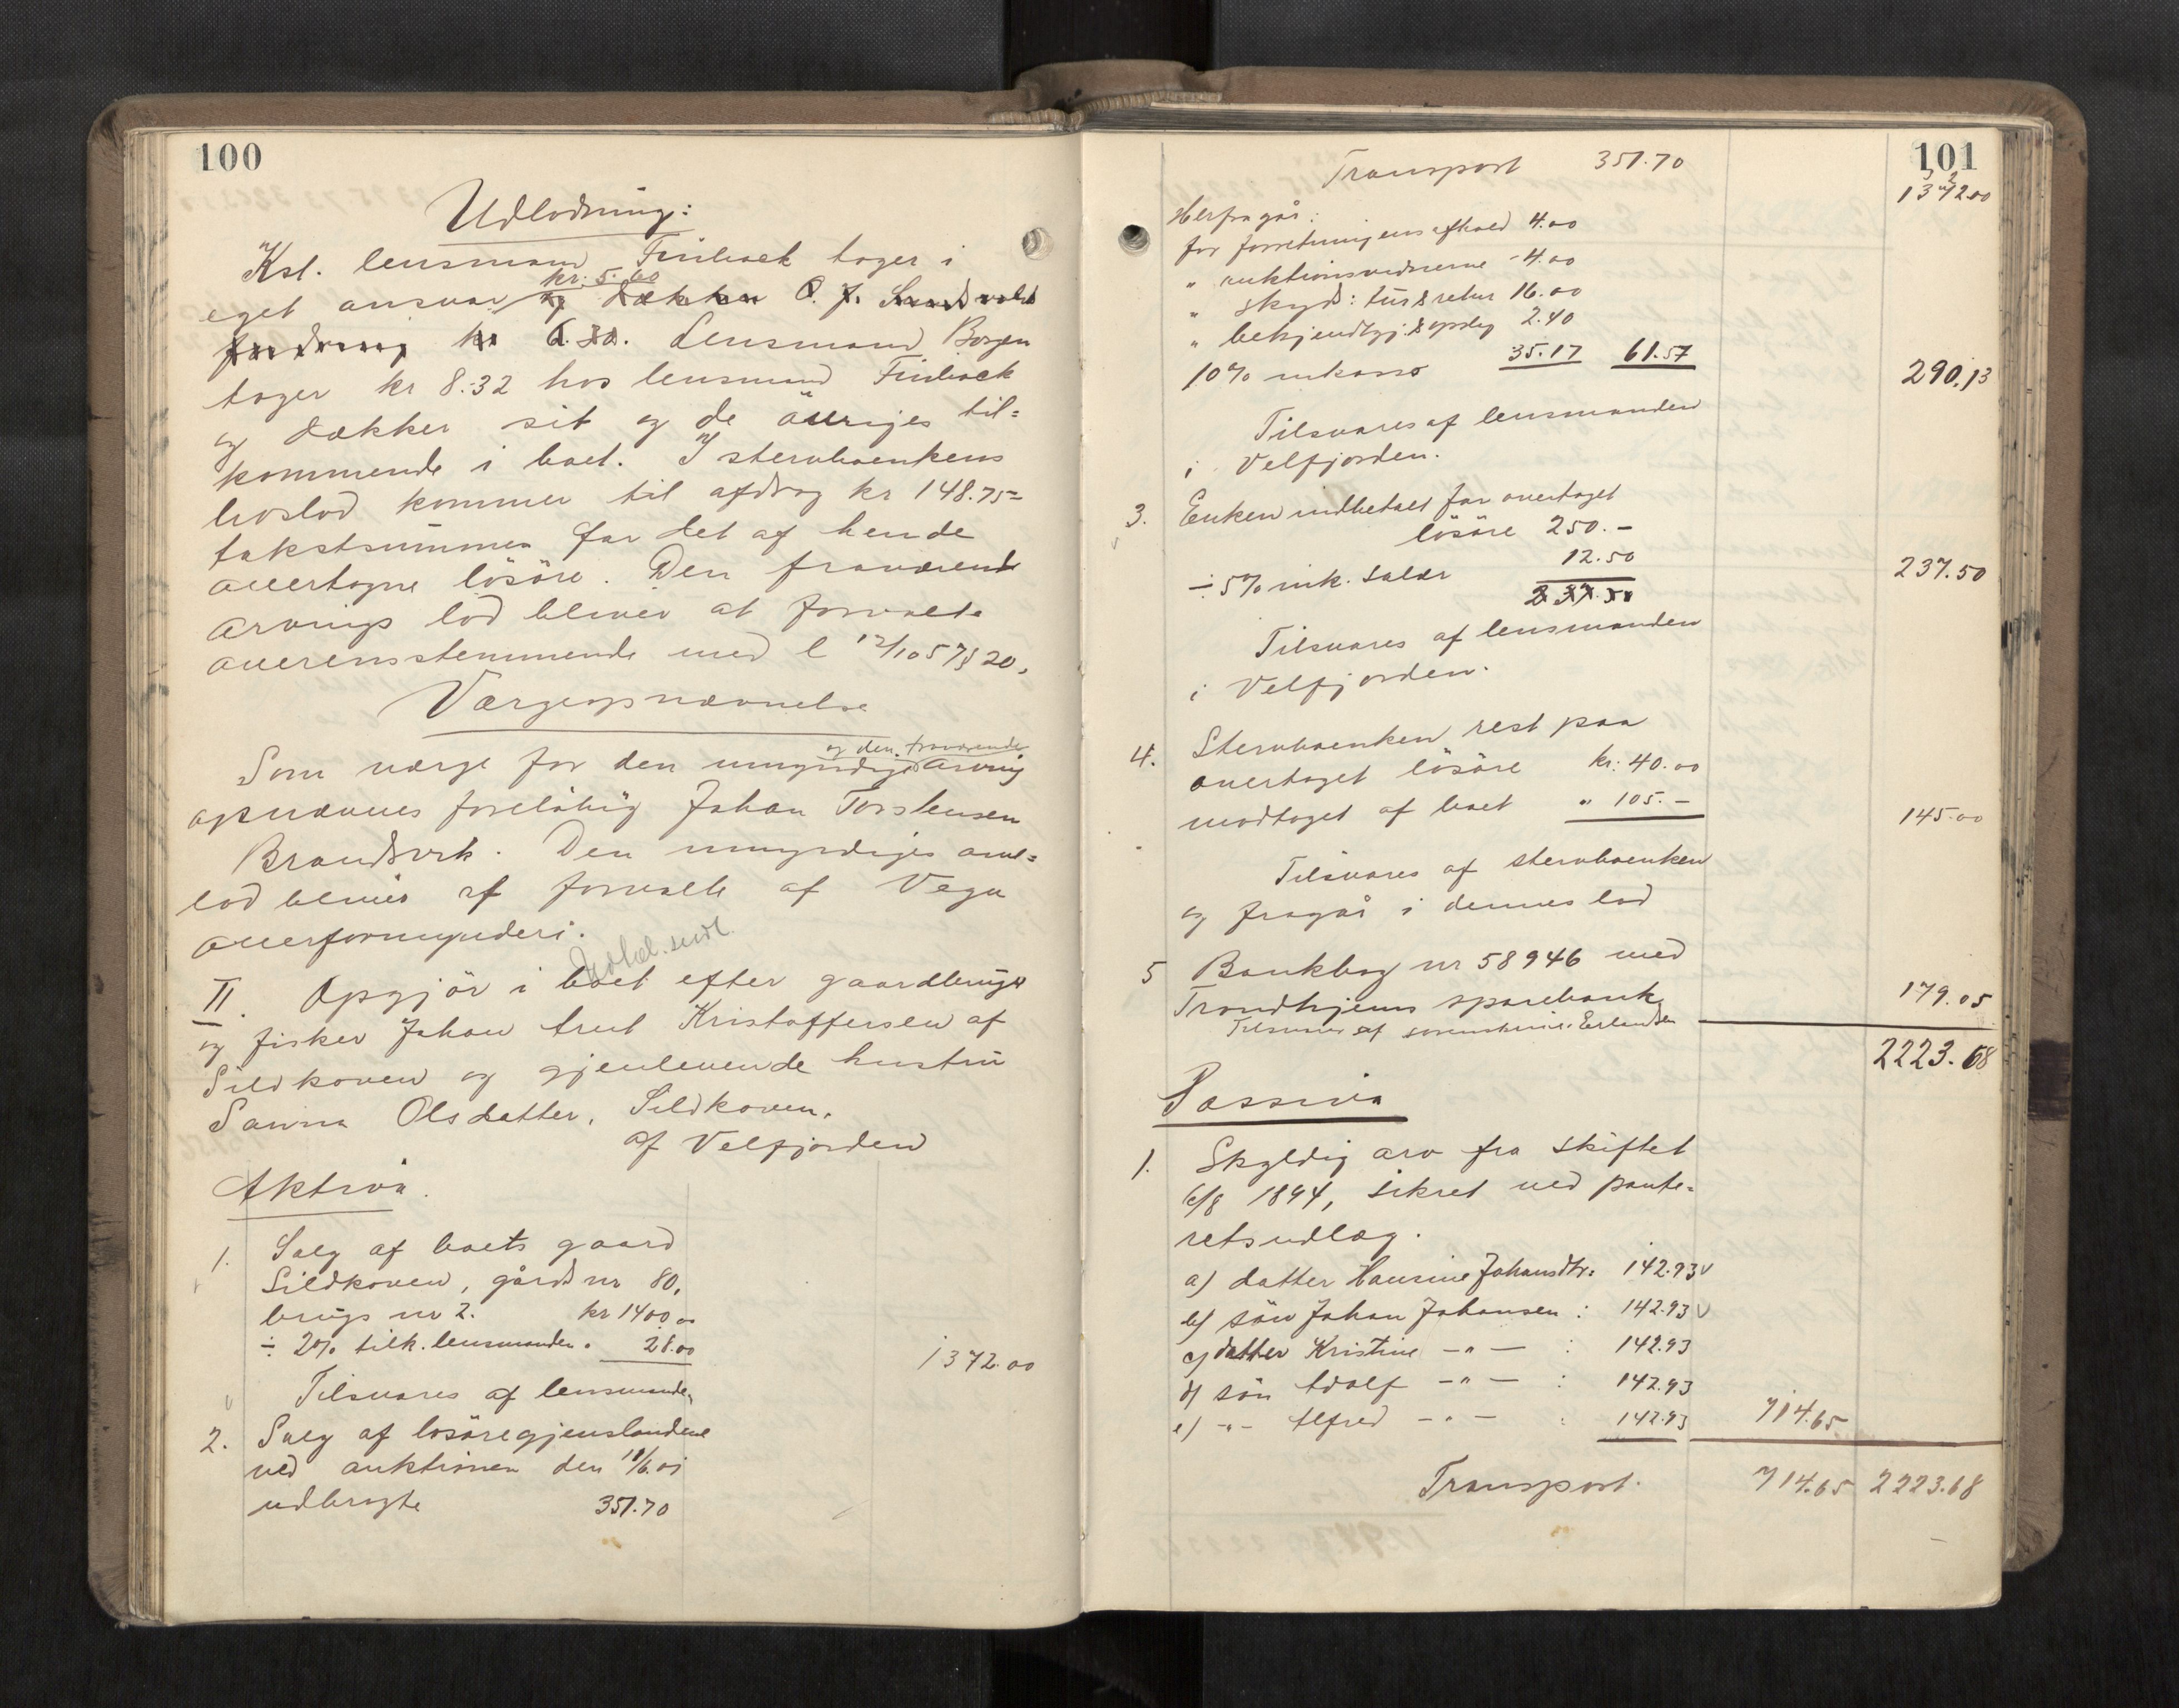 100
Udlodning:
Kst. lensmand Finbaek tager i
kr. 5.60
eget ansvar og dækker O. J. Sandvolds
fordring kr 6.30. Lensmand Borgen
tager kr 8.32 hos lensmand Finbaek
og dækker sit og de övriges til=
kommende i boet. I stervboenkens
boslod kommer til afdrag kr 148.75 =
takstsummen for det af hende
overtagne lösöre. Den fraværende
arvings lod bliver at forvalte
overensstemmende med l 12/10 57 § 20.
Værgeopnævnelse
og den fraværende
Som værge for den umyndige arving
opnævnes foreløbig Johan Torstensen
Brandsvik. Den umyndiges arve=
lod bliver at forvalte af Vega
overformynderi.
Udtal. sendt.
II. Opgjör i boet efter gaardbruger
og fisker Johan Arnt Kristoffersen af
Sildkoven og gjenlevende hustru
Sanna Olsdatter, Sildkoven.
af Velfjorden
Aktiva.
1. Salg af boets gaard
Sildkoven, gårds nr 80,
brugs nr 2. kr 1400.00
÷ 2% tilk. lensmanden " 28.00 1372.00
Tilsvares af lensmanden
2. Salg af lösöregjenstandene
ved auktionen den 18/6.01
udbragte 351.70
101
Transport 351.70 1372.00
Herfra går:
for forretningens afhold 4.00
" auktionsvidnerne - 4.00
" skyds: tur & retur 16.00
" bekjendtgj. & opslag 2.40
10% inkasso 35.17 61.57 290.13
Tilsvares af lensmanden
i Velfjorden.
3. Enken indbetalt for overtaget
lösöre 250.-
÷ 5% ink. salær 12.50 237.50
237.50
Tilsvares af lensmanden
i Velfjorden.
4. Stervboenken rest paa
overtaget lösöre kr: 40.00
modtaget af boet " 105.- 145.00
Tilsvares af stervboenken
og fragår i dennes lod
5 Bankbog nr 58946 med
Trondhjems sparebank 179.05
Tilsvares af sorenskriver Erlandsen
2223.68
Passiva
1. Skyldig arv fra skiftet
6/8 1894, sikret ved pante=
retsudlæg.
a) datter Hansine Johansdtr: 142.93 v
b) sön Johan Johansen : 142.93 v
c) datter Kristine -"- : 142.93
d) sön Adolf -"- : 142.93
e) -"- Alfred -"- : 142.93 714.65
Transport. 714.65 2223.68